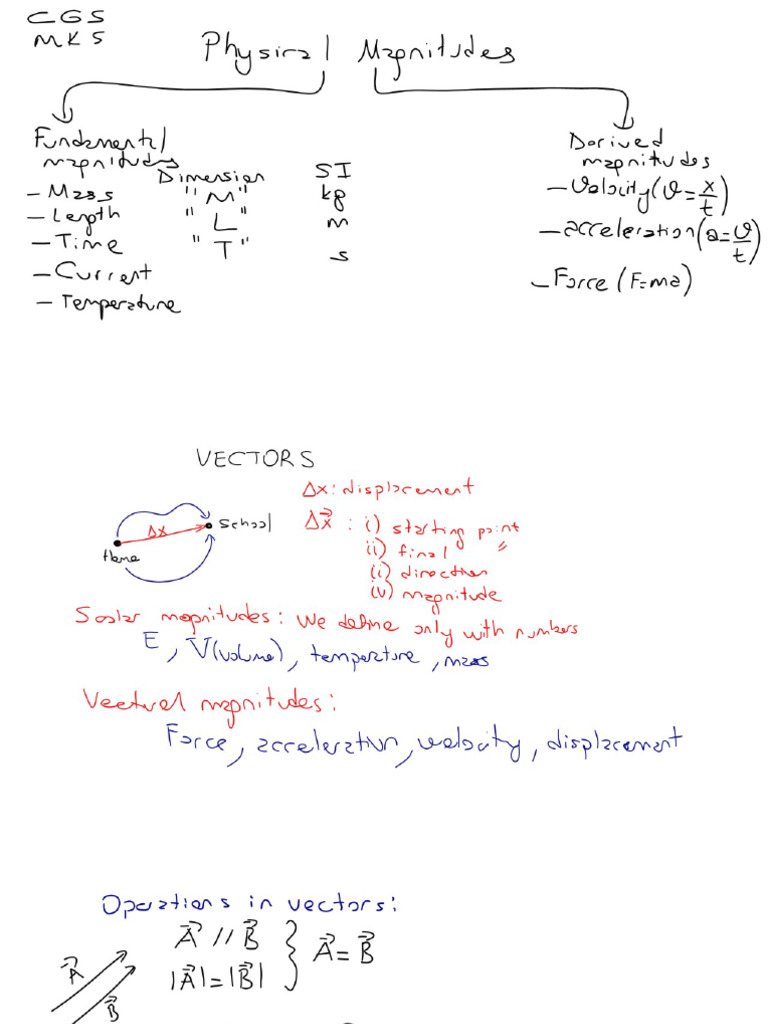 CGS
MKS
Physical Magnitudes
Fundamental magnitudes
Dimension SI
- Mass "M" kg
- Length "L" m
- Time "T" s
- Current
- Temperature
Derived magnitudes
- Velocity (ϑ = x/t)
- acceleration (a = ϑ/t)
- Force (F=ma)
VECTORS
Δx: displacement
Home
Δx
School
Δx⃗ : i) starting point
ii) final "
iii) direction
iv) magnitude
Scalar magnitudes: We define only with numbers
E, V(volume), temperature, mass
Vectorel magnitudes:
Force, acceleration, velocity, displacement
Operations in vectors:
A⃗ B⃗
A⃗ // B⃗
|A⃗| = |B⃗|
} A⃗ = B⃗